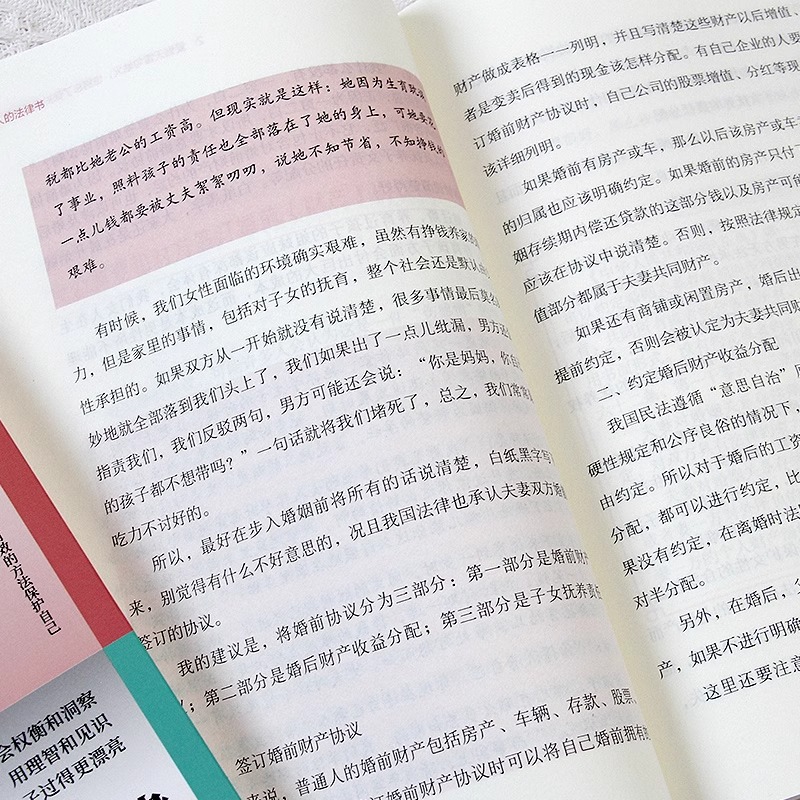 人的法律书
税都比她老公的工资高。但现实就是这样：她因为生育耽
了事业，照料孩子的责任也全部落在了她的身上，可她
一点儿钱都要被丈夫絮絮叨叨，说她不知节省，不知挣钱的
艰难。
有时候，我们女性面临的环境确实艰难，虽然有挣钱养家的
力，但是家里的事情，包括对子女的抚育，整个社会还是默认由
性承担的。如果双方从一开始就没有说清楚，很多事情最后莫名
妙地就全部落到我们头上了，我们如果出了一点儿纰漏，男方
指责我们，我们反驳两句，男方可能还会说：“你是妈妈，你
的孩子都不想带吗？”一句话就将我们堵死了，总之，我们常常
吃力不讨好的。
所以，最好在步入婚姻前将所有的话说清楚，白纸黑字写
来，别觉得有什么不好意思的，况且我国法律也承认夫妻双方婚前
签订的协议。
我的建议是，将婚前协议分为三部分：第一部分是婚前财
；第二部分是婚后财产收益分配；第三部分是子女抚养责任
签订婚前财产协议
来说，普通人的婚前财产包括房产、车辆、存款、股票、
订婚前财产协议时可以将自己婚前拥有
财产做成表格一一列明，并且写清楚这些财产以后增值、
者是变卖后得到的现金该怎样分配。有自己企业的人要
订婚前财产协议时，自己公司的股票增值、分红等现
该详细列明。
如果婚前有房产或车，那么以后该房产或车
的归属也应该明确约定。如果婚前的房产只付了
姻存续期内偿还贷款的这部分钱以及房产可能
应该在协议中说清楚。否则，按照法律规定
值部分都属于夫妻共同财产。
如果还有商铺或闲置房产，婚后出
提前约定，否则会被认定为夫妻共同财
二、约定婚后财产收益分配
我国民法遵循“意思自治”原
硬性规定和公序良俗的情况下，
由约定。所以对于婚后的工资
分配，都可以进行约定，比
果没有约定，在离婚时法
对半分配。
另外，在婚后，
产，如果不进行明确
这里还要注意
有效的方法保护自己
会权衡和洞察
用理智和见识
子过得更漂亮